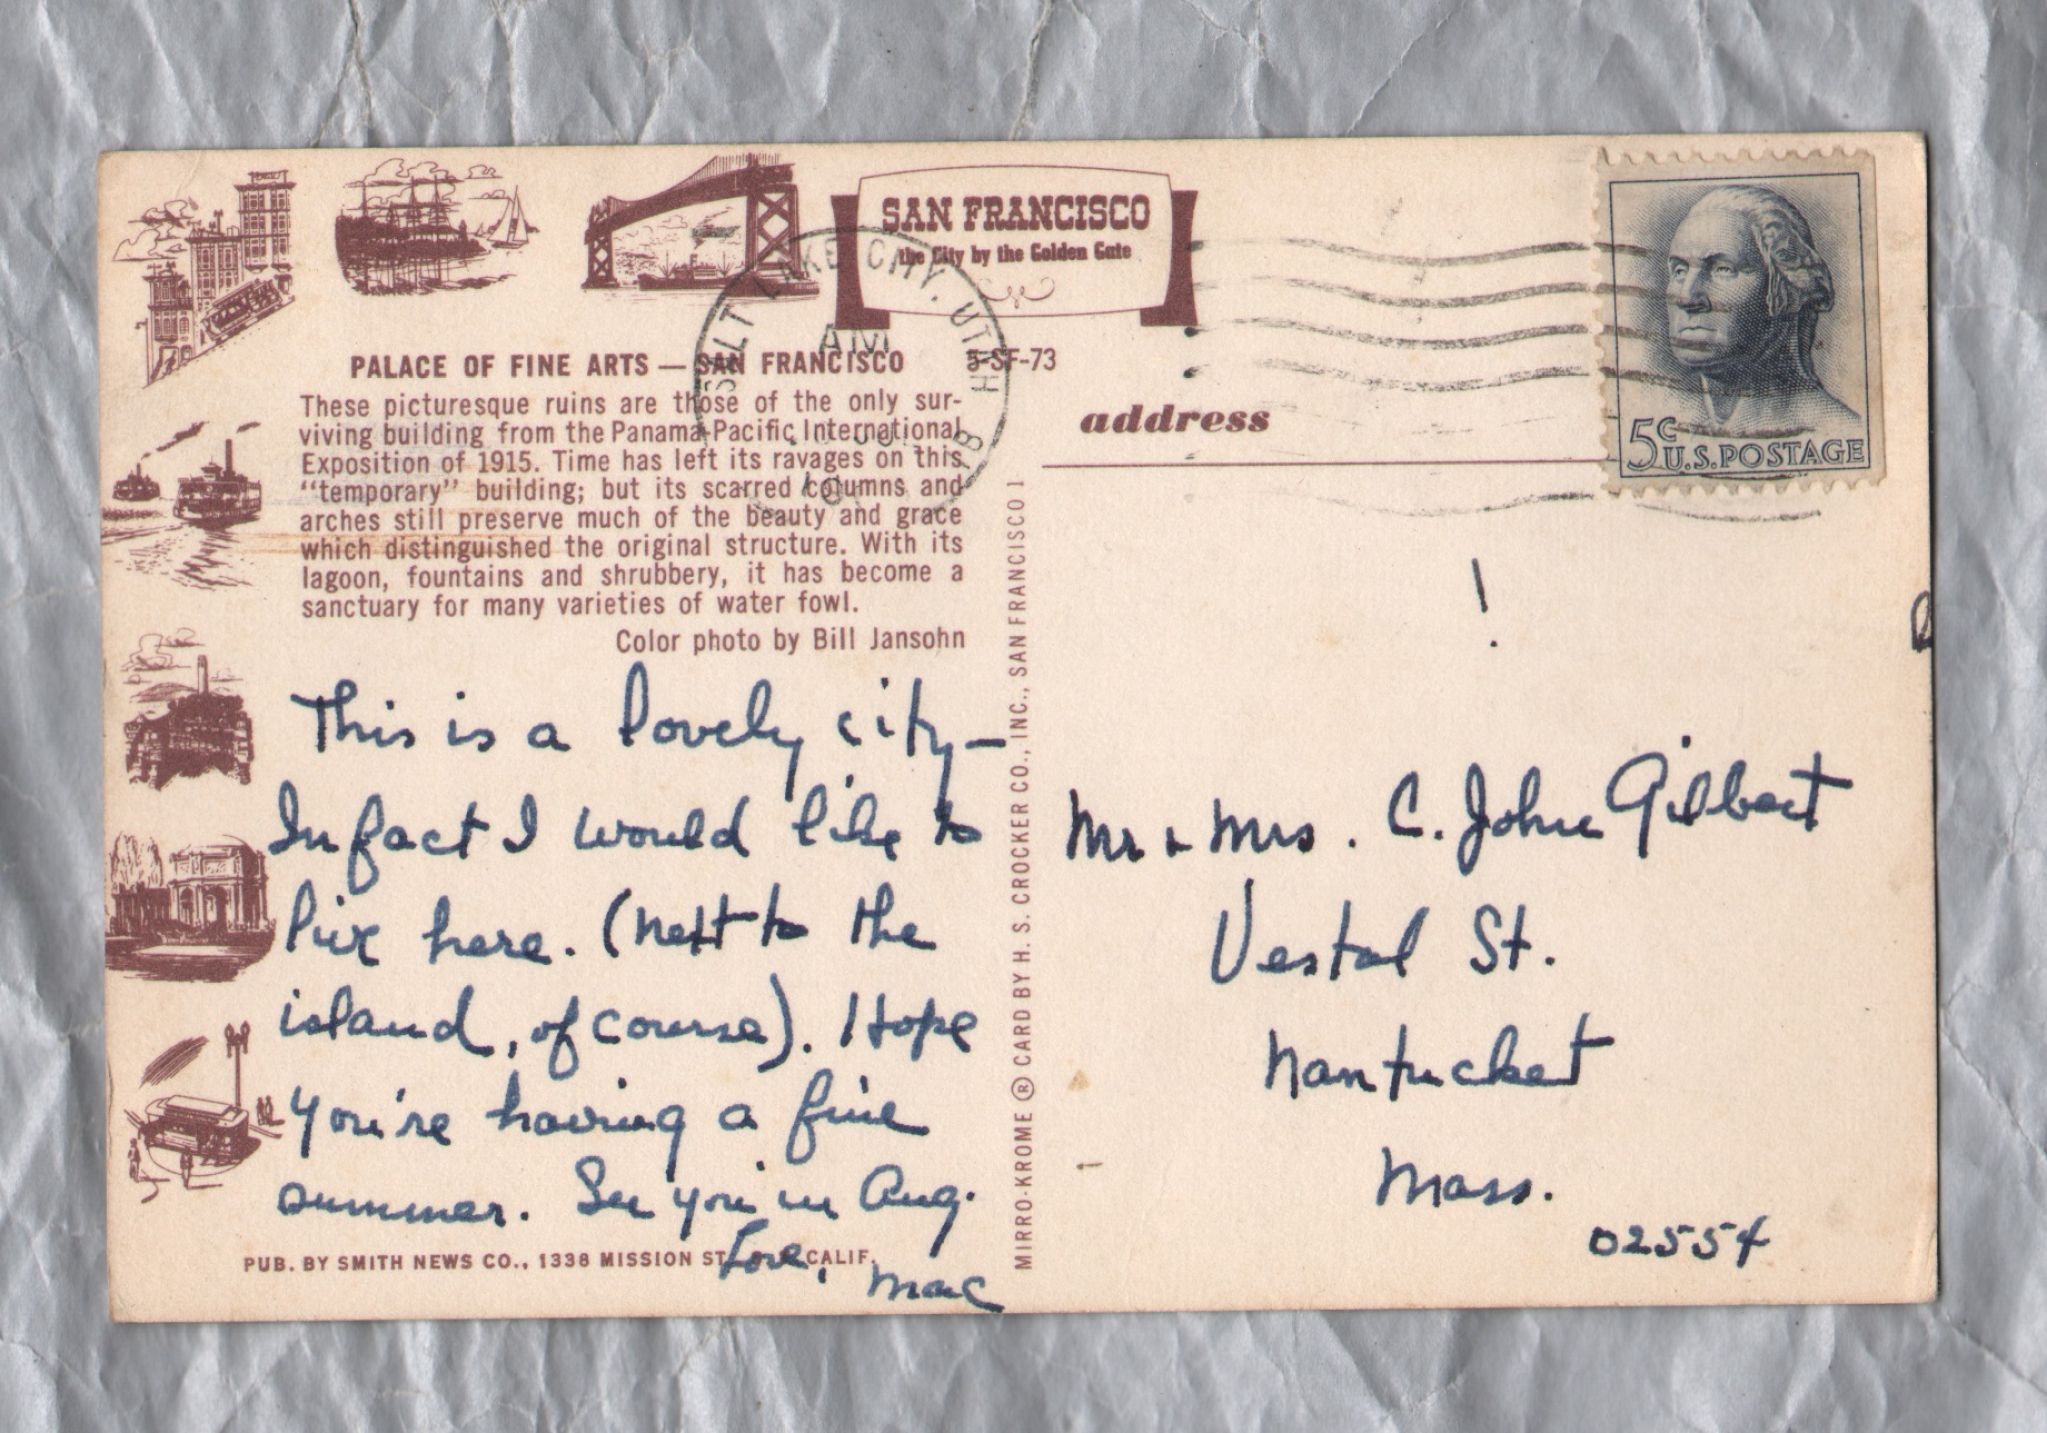 SAN FRANCISCO
the City by the Golden Gate
SALT LAKE CITY, UTAH
AM
PALACE OF FINE ARTS — SAN FRANCISCO 5-SF-73
These picturesque ruins are those of the only sur-
viving building from the Panama-Pacific International
Exposition of 1915. Time has left its ravages on this
“temporary” building; but its scarred columns and
arches still preserve much of the beauty and grace
which distinguished the original structure. With its
lagoon, fountains and shrubbery, it has become a
sanctuary for many varieties of water fowl.
Color photo by Bill Jansohn
This is a lovely city —
In fact I would like to
live here. (next to the
island, of course). Hope
you're having a fine
summer. See you in Aug.
Love, Mac
PUB. BY SMITH NEWS CO., 1338 MISSION ST. CALIF.
MIRRO-KROME ® CARD BY H. S. CROCKER CO., INC., SAN FRANCISCO 1
address
5c U.S. POSTAGE
!
Mr & Mrs. C. John Gilbert
Vestal St.
Nantucket
Mass.
02554